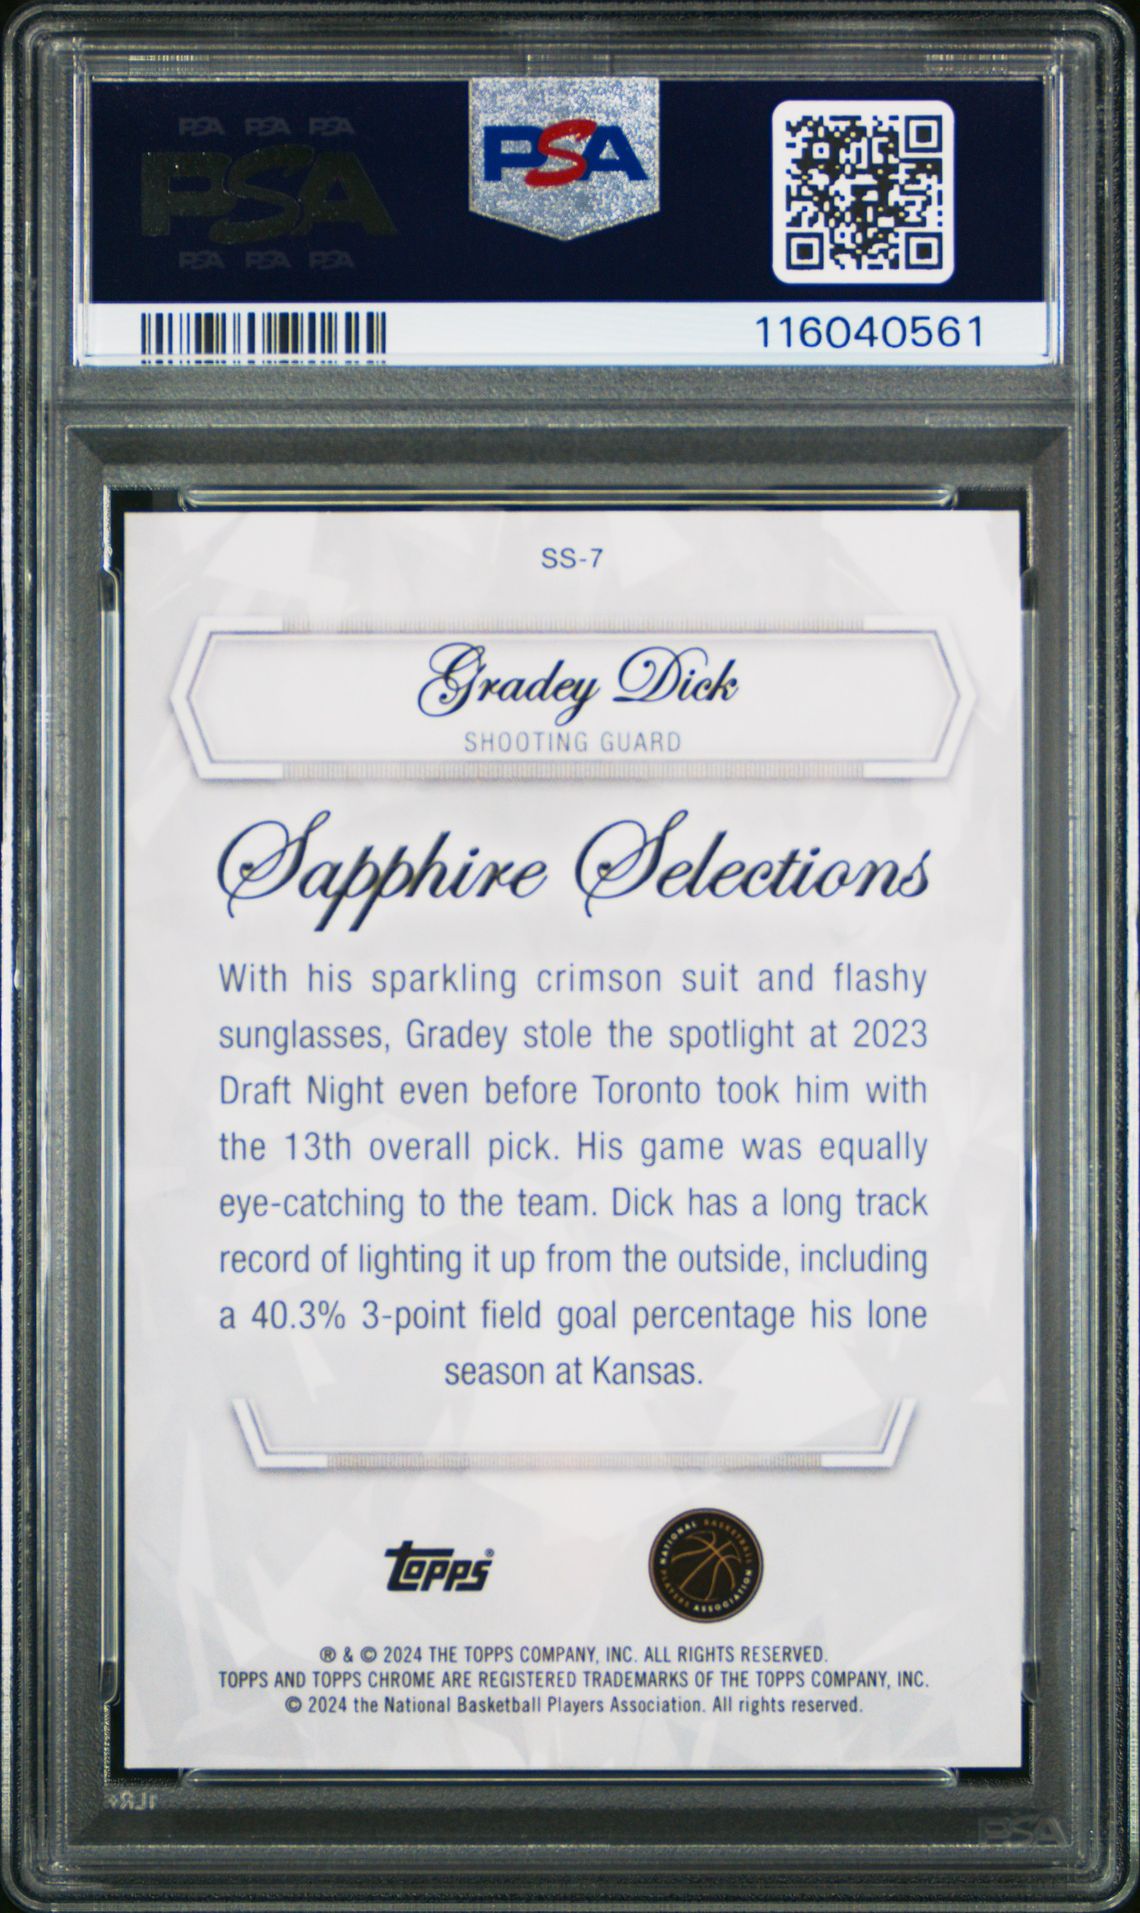 PSA PSA PSA
PSA
PSA PSA PSA
PSA
116040561
SS-7
Gradey Dick
SHOOTING GUARD
Sapphire Selections
With his sparkling crimson suit and flashy
sunglasses, Gradey stole the spotlight at 2023
Draft Night even before Toronto took him with
the 13th overall pick. His game was equally
eye-catching to the team. Dick has a long track
record of lighting it up from the outside, including
a 40.3% 3-point field goal percentage his lone
season at Kansas.
topps®
NATIONAL BASKETBALL
PLAYERS ASSOCIATION
® & © 2024 THE TOPPS COMPANY, INC. ALL RIGHTS RESERVED.
TOPPS AND TOPPS CHROME ARE REGISTERED TRADEMARKS OF THE TOPPS COMPANY, INC.
© 2024 the National Basketball Players Association. All rights reserved.
PSA